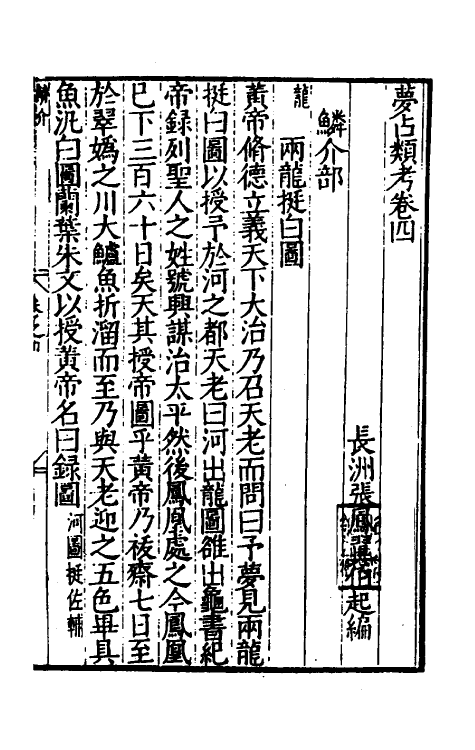 夢占類考卷四
長洲張鳳翼伯起編
鱗介部
龍
兩龍挺白圖
黃帝脩德立義天下大治乃召天老而問曰予夢見兩龍
挺白圖以授予於河之都天老曰河出龍圖雒出龜書紀
帝録列聖人之姓號興謀治太平然後鳳凰處之今鳳凰
已下三百六十日矣天其授帝圖乎黃帝乃祓齋七日至
於翠嬀之川大鱸魚折溜而至乃與天老迎之五色畢具
魚汎白圖蘭葉朱文以授黃帝名曰録圖 河圖挺佐輔